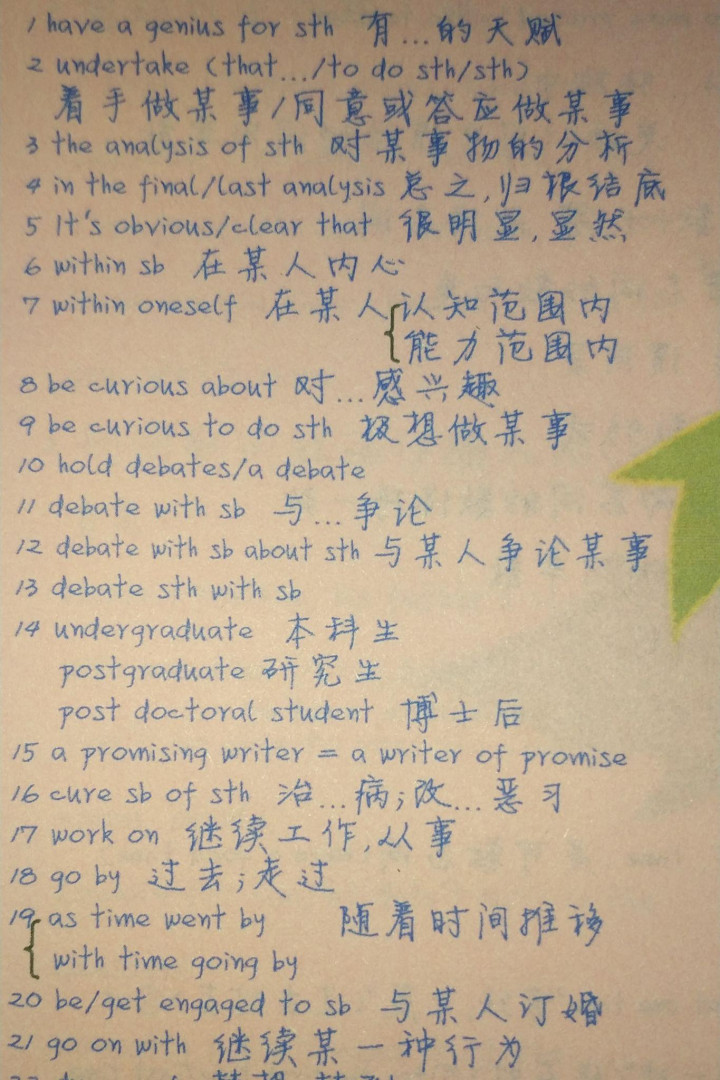 1 have a genius for sth 有...的天赋
2 undertake (that.../to do sth/sth)
着手做某事/同意或答应做某事
3 the analysis of sth 对某事物的分析
4 in the final/last analysis 总之,归根结底
5 It's obvious/clear that 很明显,显然
6 within sb 在某人内心
7 within oneself 在某人认知范围内
能力范围内
8 be curious about 对...感兴趣
9 be curious to do sth 极想做某事
10 hold debates/a debate
11 debate with sb 与...争论
12 debate with sb about sth 与某人争论某事
13 debate sth with sb
14 undergraduate 本科生
postgraduate 研究生
post doctoral student 博士后
15 a promising writer = a writer of promise
16 cure sb of sth 治...病;改...恶习
17 work on 继续工作,从事
18 go by 过去;走过
19 as time went by 随着时间推移
with time going by
20 be/get engaged to sb 与某人订婚
21 go on with 继续某一种行为